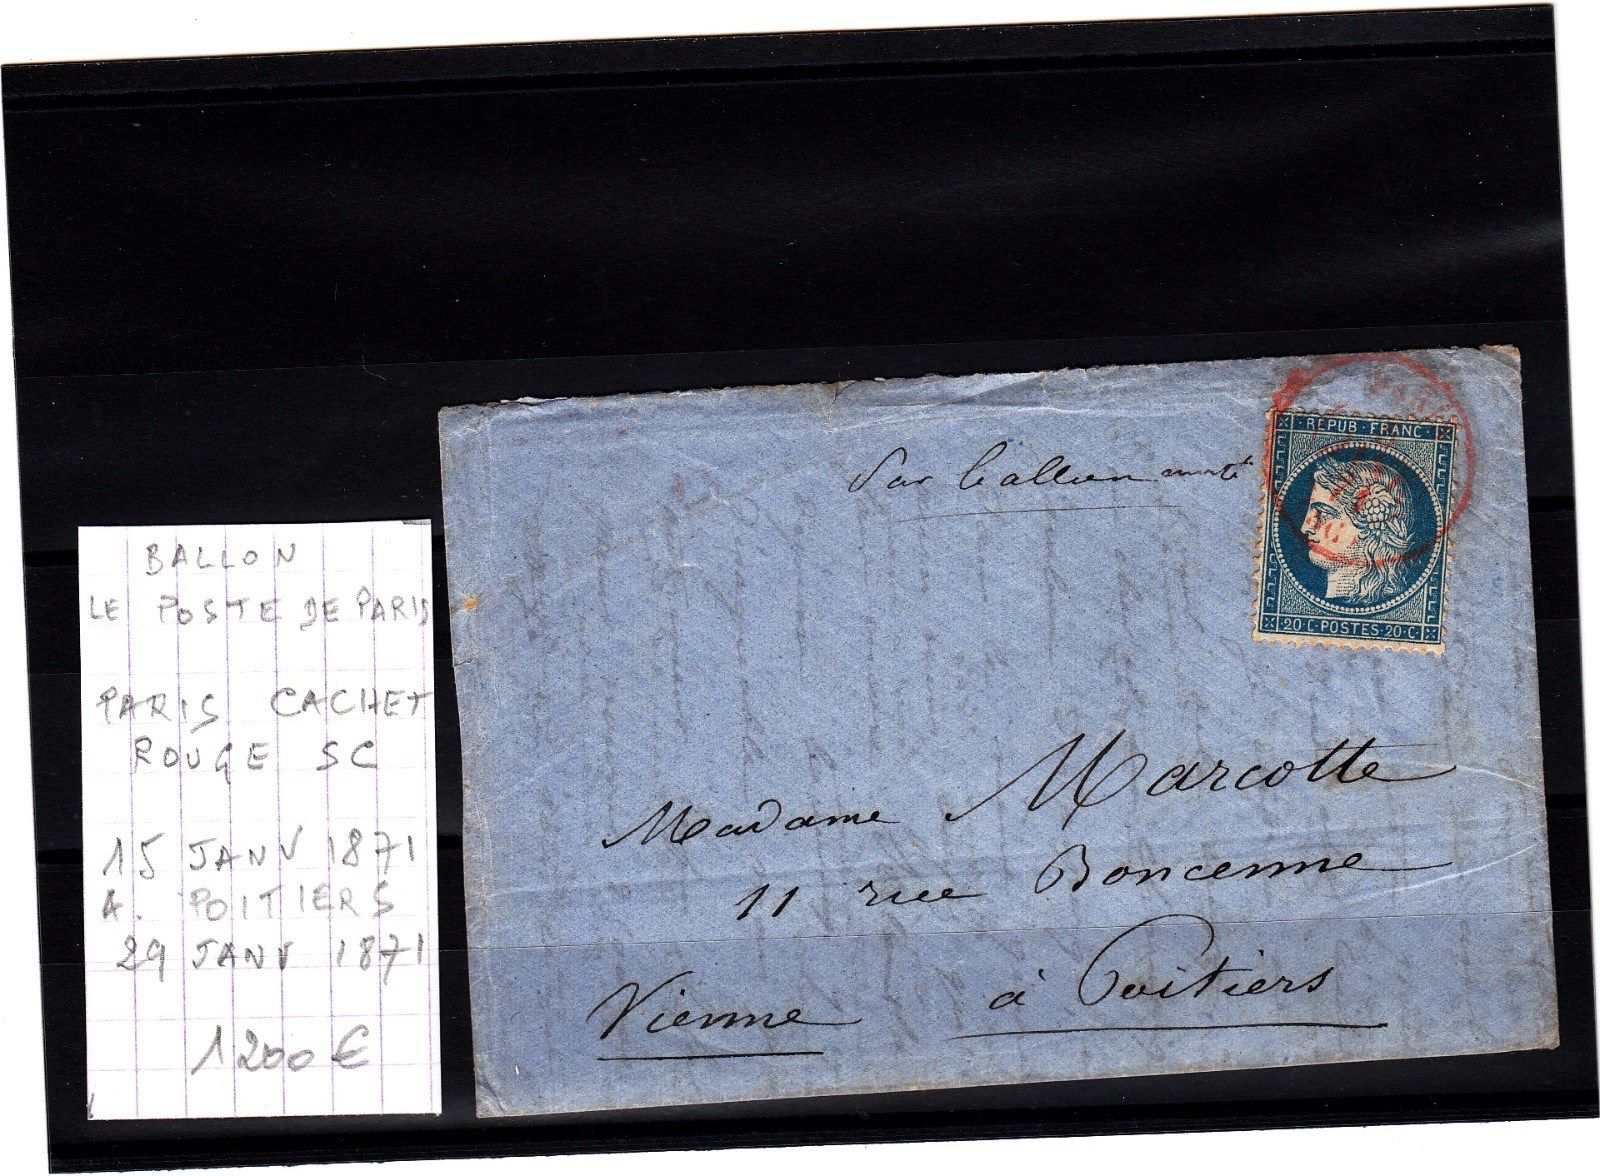 BALLON
LE POSTE DE PARIS
PARIS CACHET
ROUGE SC
15 JANV 1871
A. POITIERS
29 JANV 1871
1200 €
Par ballon monté
PARIS
REPUB·FRANC
20·C·POSTES·20·C
Madame Marcotte
11 rue Boncenne
à Poitiers
Vienne